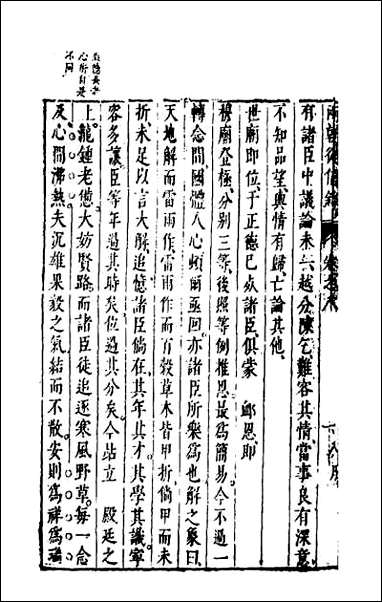 有諸臣中議論未一越分陳乞難容其情當事良有深意
不知品望輿情有歸亡論其他
世廟即位于正德已故諸臣俱蒙 䘏恩即
穆廟登極分別三等後照等例推恩最為簡易今不過一
轉念間國體人心頓爾亟回亦諸臣所樂為也解之彖曰
天地解而雷雨作雷雨作而百穀草木皆甲拆倘甲而未
折未足以言大解追憶諸臣倘在其年其才其學其識寧
容多讓臣等年過其時矣位過其分矣今站立 殿廷之
上龍鍾老憊大妨賢路而諸臣徒追逐寒風野草每一念
及心間沸熱夫沉雄果毅之氣結而不散安則為祥為瑞
心所自是
不同